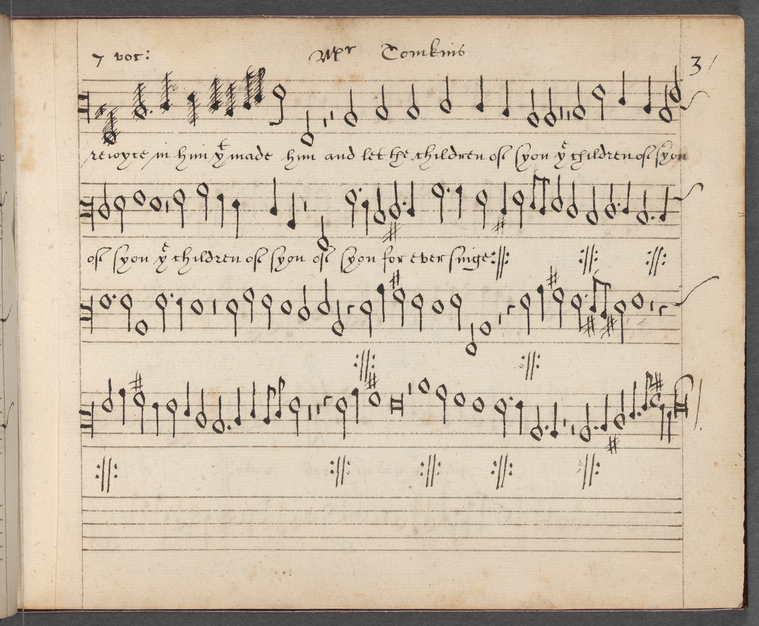 7 voc: Mr Tomkins 3
reioyce in him yt made him and let the children of syon ye children of syon
of syon ye children of syon of syon for ever singe :||: :||: :||:
:||: :||:
:||: :||: :||: :||: :||: